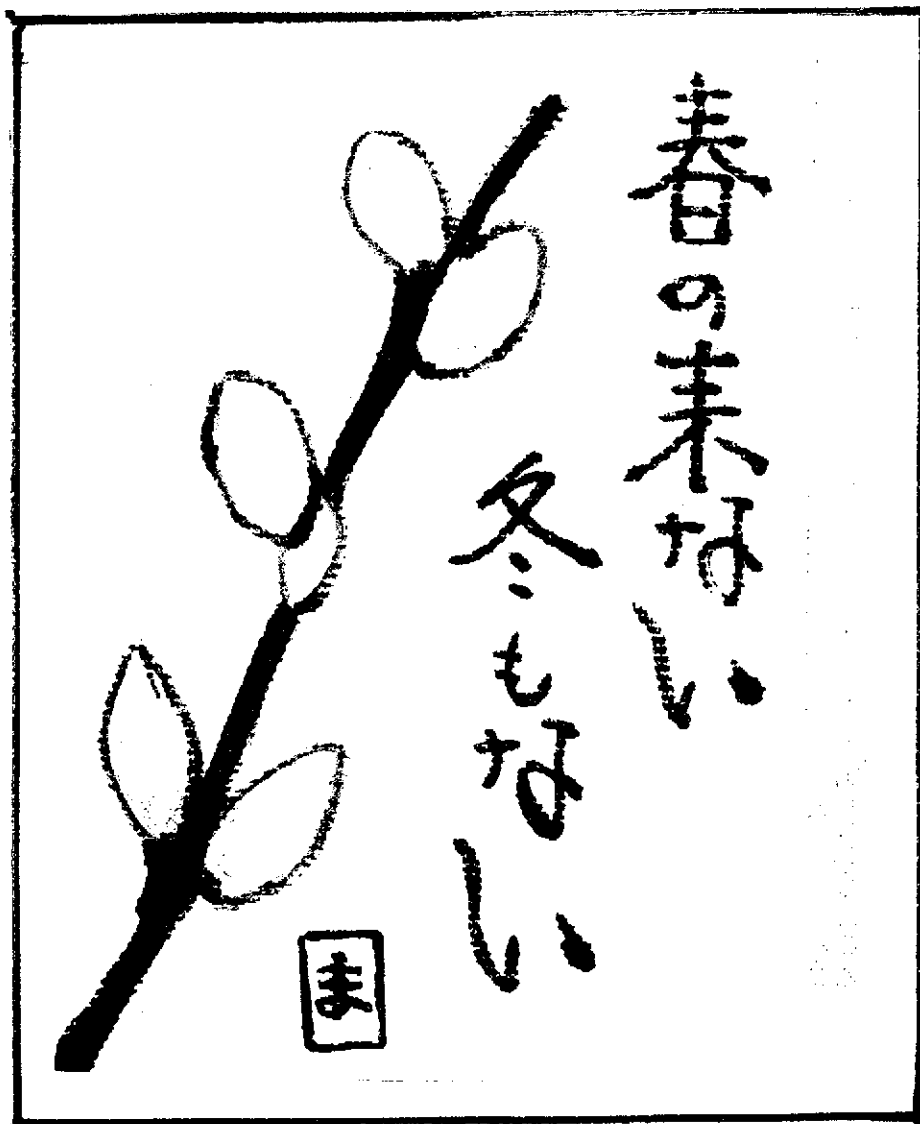 春の来ない
冬もない